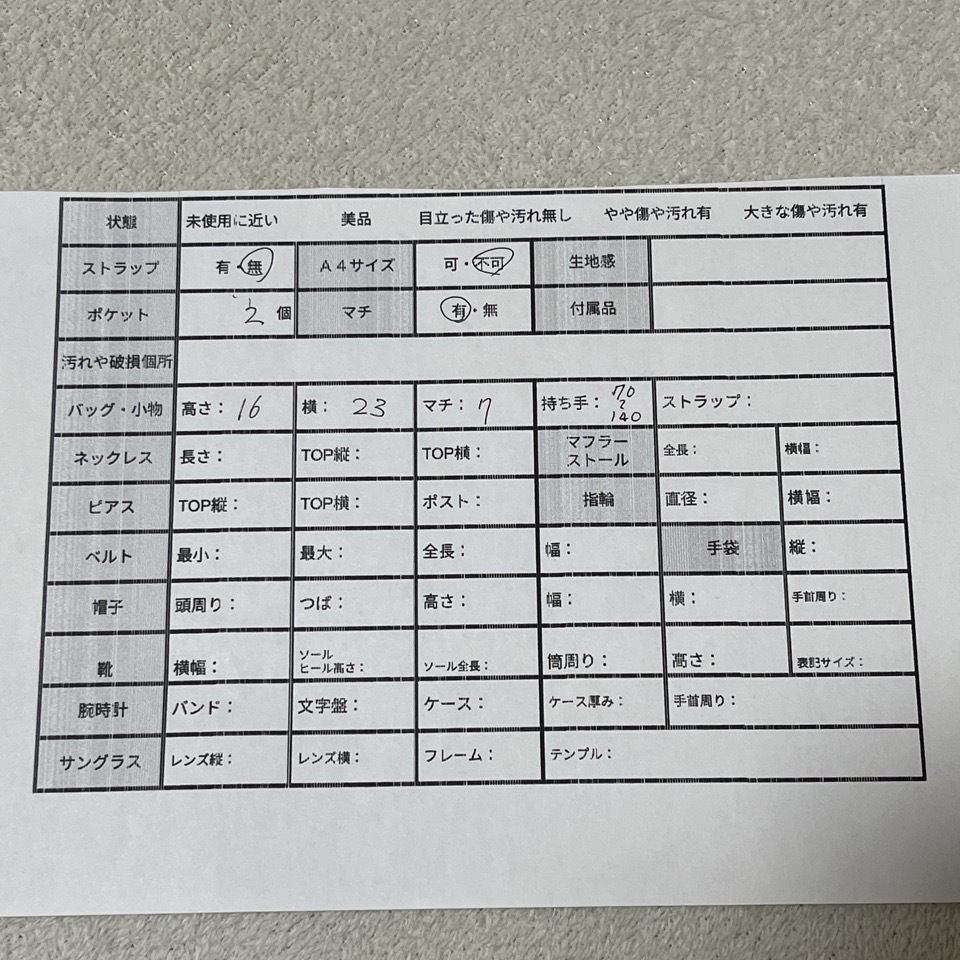 状態 未使用に近い 美品 目立った傷や汚れ無し やや傷や汚れ有 大きな傷や汚れ有
ストラップ 有・無 A4サイズ 可・不可 生地感
ポケット 2 個 マチ 有・無 付属品
汚れや破損個所
バッグ・小物 高さ：16 横：23 マチ：7 持ち手：70〜140 ストラップ：
ネックレス 長さ： TOP縦： TOP横： マフラー ストール 全長： 横幅：
ピアス TOP縦： TOP横： ポスト： 指輪 直径： 横幅：
ベルト 最小： 最大： 全長： 幅： 手袋 縦：
帽子 頭周り： つば： 高さ： 幅： 横： 手首周り：
靴 横幅： ソール ヒール高さ： ソール全長： 筒周り： 高さ： 表記サイズ：
腕時計 バンド： 文字盤： ケース： ケース厚み： 手首周り：
サングラス レンズ縦： レンズ横： フレーム： テンプル：